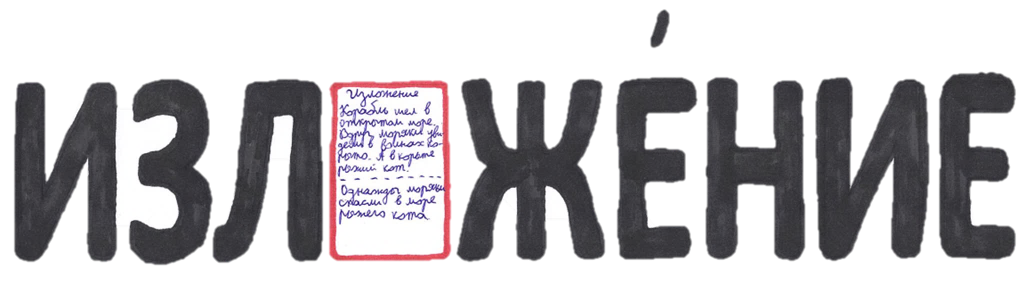 ИЗЛ ЖЕ́НИЕ
Изложение
Корабль шел в
открытом море.
Вдруг моряки уви-
дели в волнах ко-
рыто. А в корыте
рыжий кот!
Однажды моряки
спасли в море
рыжего кота